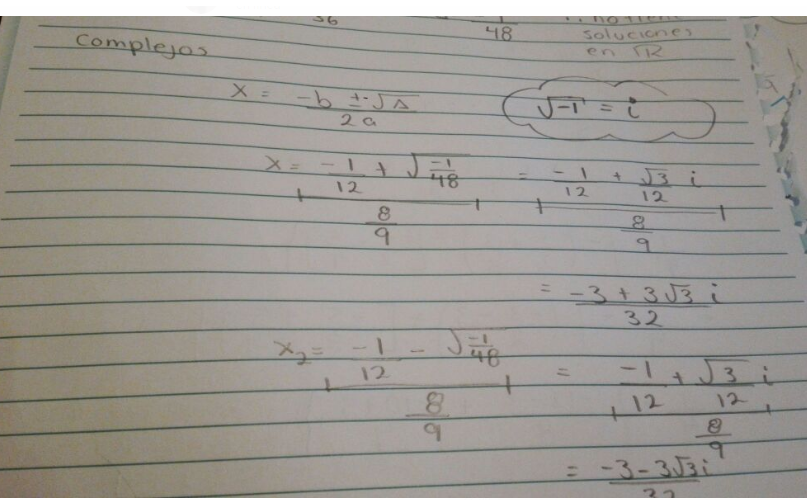 36
48
soluciones
en ℝ
Complejos
x = (-b ±√Δ)/(2a)
√-1 = i
x = (-1/12 + √(-1/48))/(8/9) = (-1/12 + √3/12 i)/(8/9)
= (-3 + 3√3 i)/32
x₂ = (-1/12 - √(-1/48))/(8/9) = (-1/12 + √3/12 i)/(8/9)
= (-3 - 3√3 i)/32